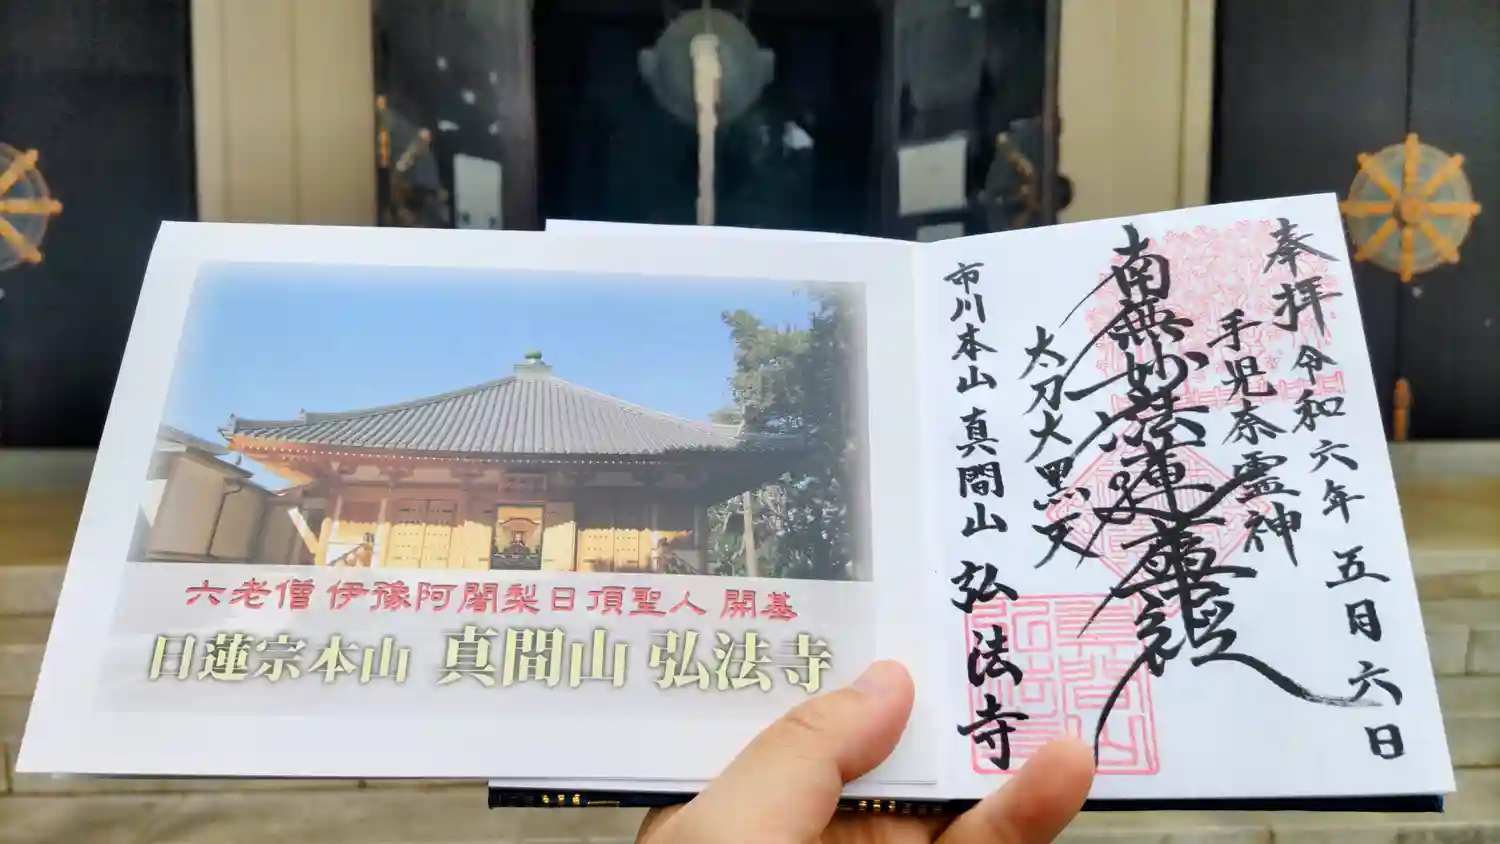 六老僧 伊豫阿闍梨日頂聖人 開基
日蓮宗本山 真間山 弘法寺
奉拝 令和六年 五月 六日
手児奈霊神
南無妙法蓮華経
太刀大黒天
市川本山 真間山 弘法寺